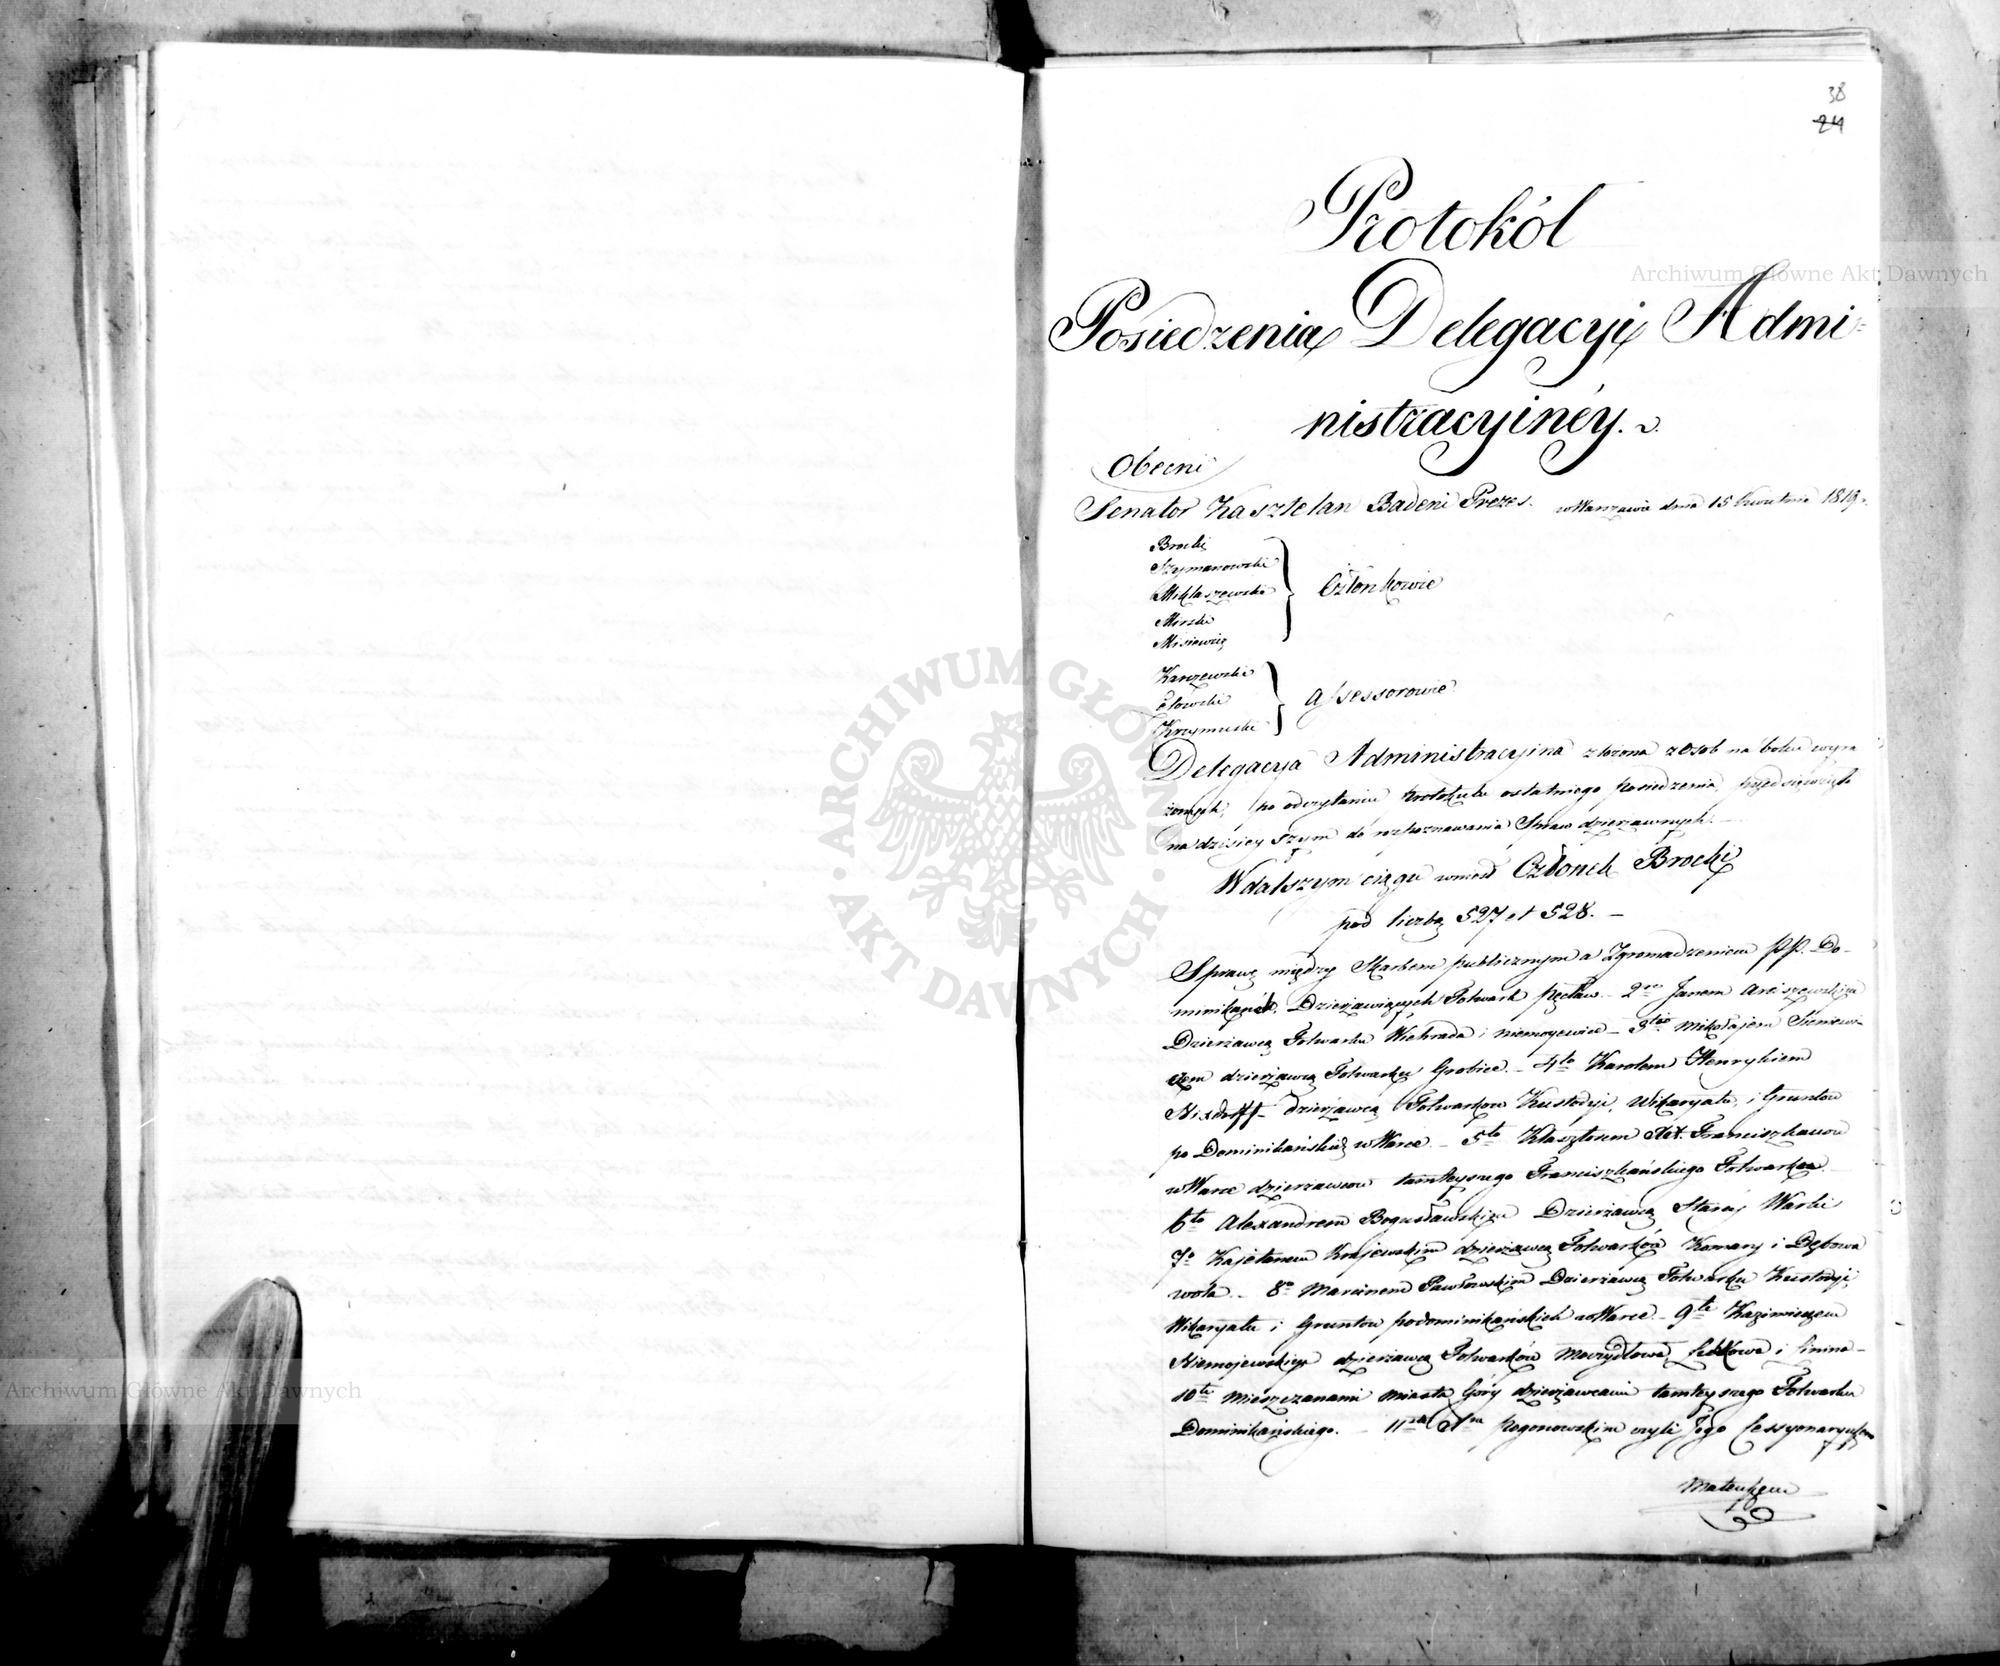 38
24
Protokół
Posiedzenia Delegacyi Admi=
nistracyinéy.
Obecni
Senator Kasztelan Badeni Prezes. w Warszawie dnia 15 Kwietnia 1819.
Brocki
Szymanowski
Miklaszewski
Mirski
Misiewicz
Członkowie
Karczewski
Krzymuski
Assessorowie
Delegacya Administracyina złożona z osob na boku wyra
żonych, po odczytaniu Protokułu ostatniego posiedzenia, przedsięwzięła
na dzisieyszym do rozpoznawania Spraw dzierzawnych.
W dalszym ciągu wniosł Członek Brocki
pod liczbą 527 et 528. –
Sprawę między Skarbem publicznym a Zgromadzeniem PP. Do-
minikanów Dzierżawiących Folwark – Janem Arciszewskim
Dzierżawcą Folwarku Wichrada i niemojewice – 3tio Mikołajem
dzierżawcą Folwarku Grobice. – 4to Karolem Henrykiem
Nixdorff dzierżawcą Folwarków Kustodyi, Wikaryatu, i Gruntow
po Dominikańskich w Warce. – 5to Klasztorem Franciszkanow
w Warce dzierżawcow tamteyszego Franciszkańskiego Folwarku.
6to Alexandrem Bogusławskim Dzierżawcą Staréy Warki
7o Kajetanem Krajewskim dzierżawcą Folwarków Komary i Dębowa
wola. – 8o Marcinem Pawłowskim Dzierżawcą Folwarku Kustodyi,
Wikaryatu i Gruntow podominikańskich w Warce. – 9to Kazimierzem
Niemojewskim dzierżawcą Folwarków Moczydłowa, i
10te Mieszczanami miasta Góry dzierżawcami tamteyszego Folwarku
Dominikańskiego. – 11 Pogonowskim czyli Jego Cessyonaryuszem
Archiwum Główne Akt Dawnych
ARCHIWUM GŁÓWNE AKT DAWNYCH
Archiwum Główne Akt Dawnych